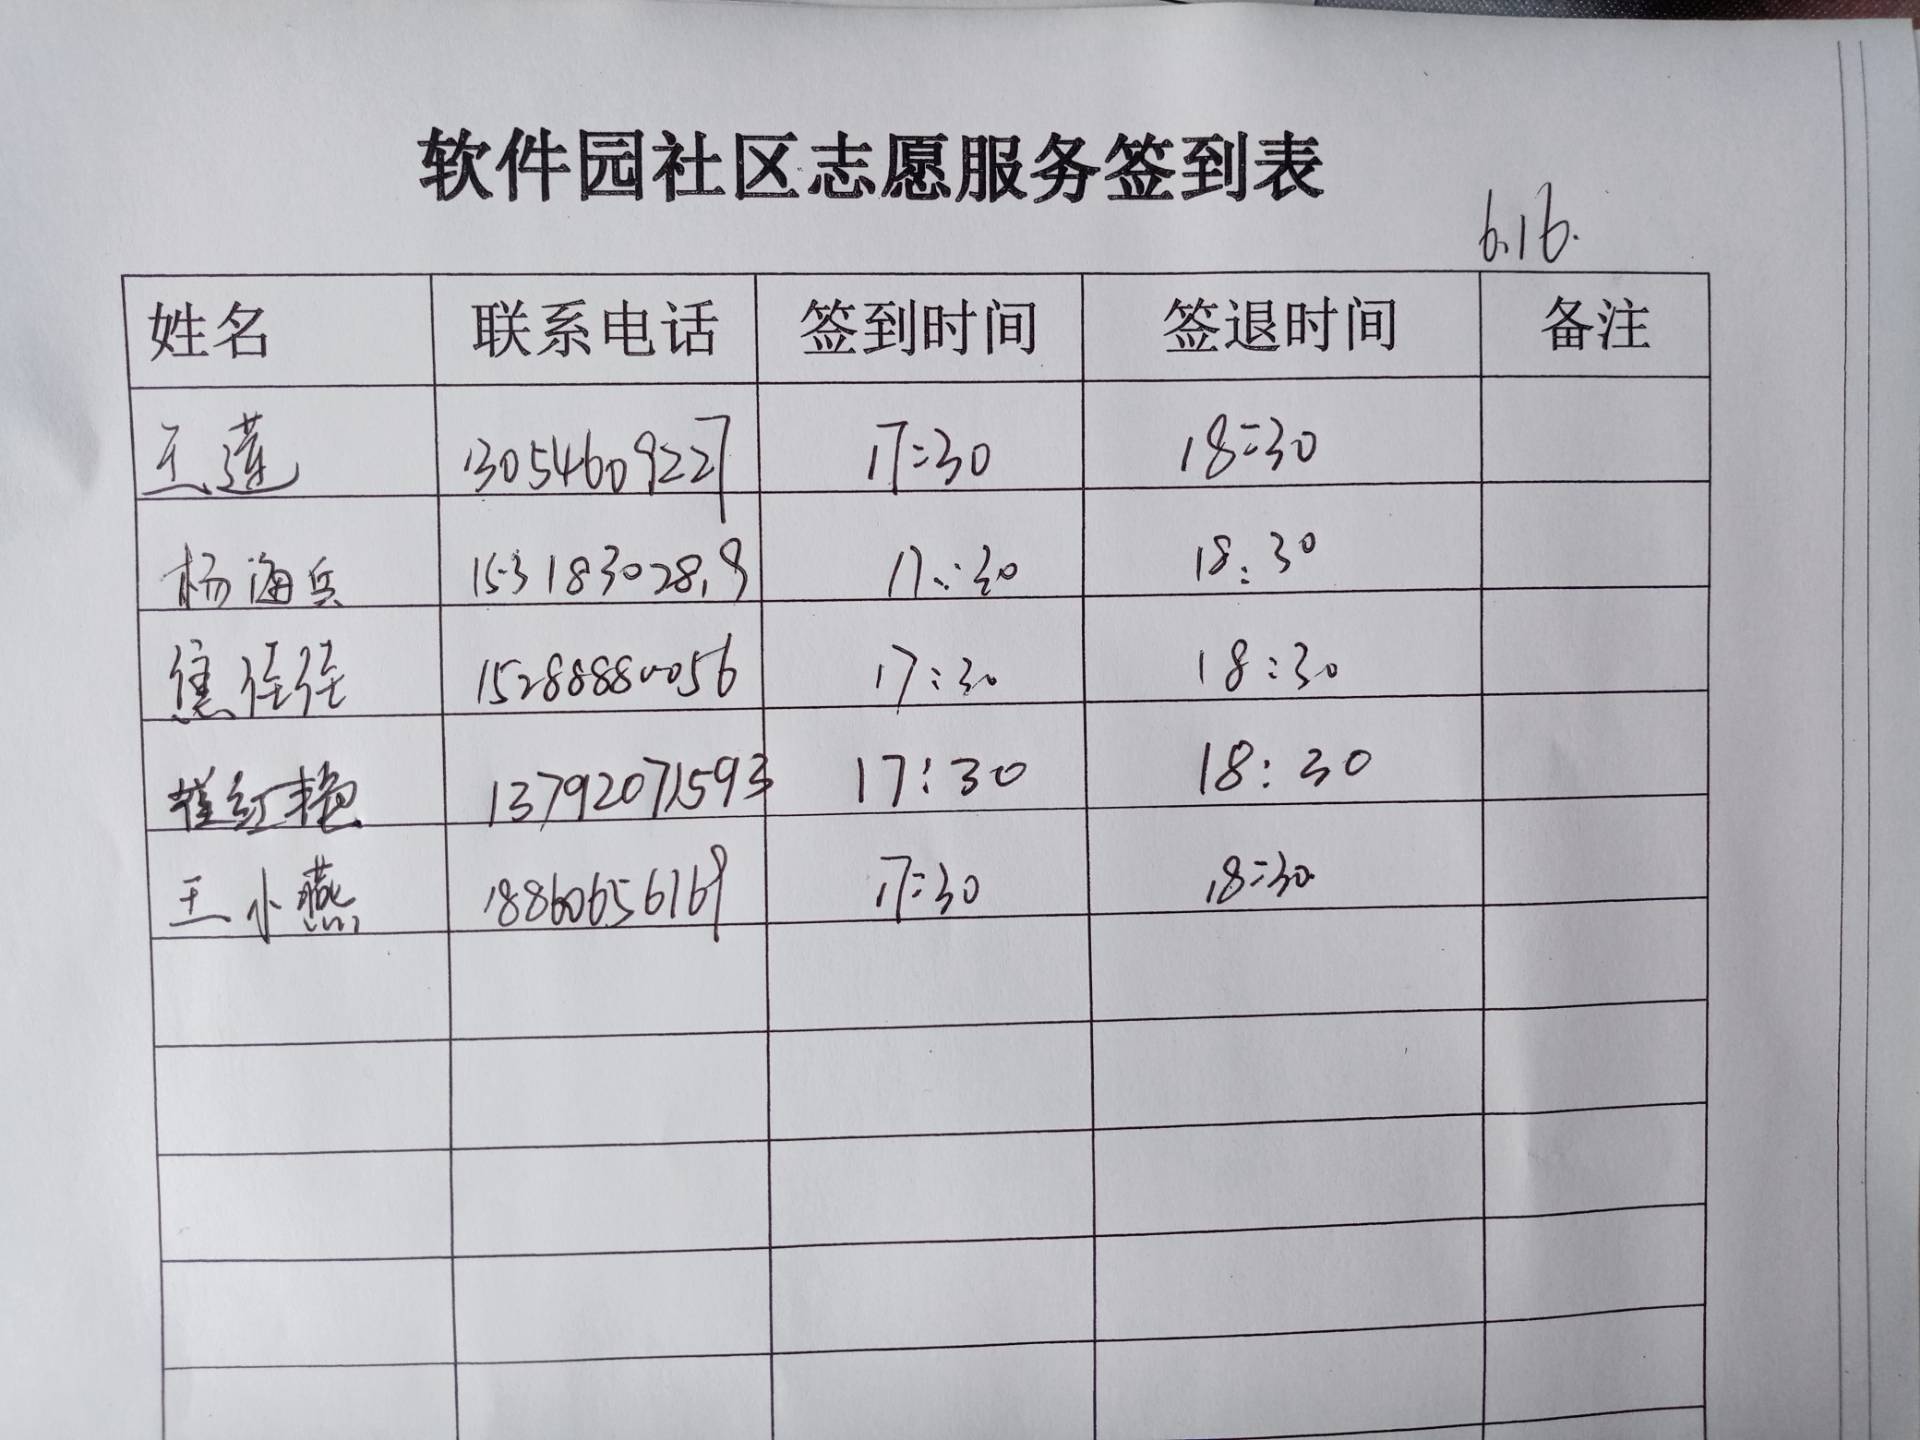 软件园社区志愿服务签到表
6.16.
姓名 联系电话 签到时间 签退时间 备注
王莲 13054609227 17:30 18:30
杨海兵 15318302819 17:30 18:30
焦佳佳 15288880056 17:30 18:30
崔红艳 13792071593 17:30 18:30
王小燕 18860656169 17:30 18:30